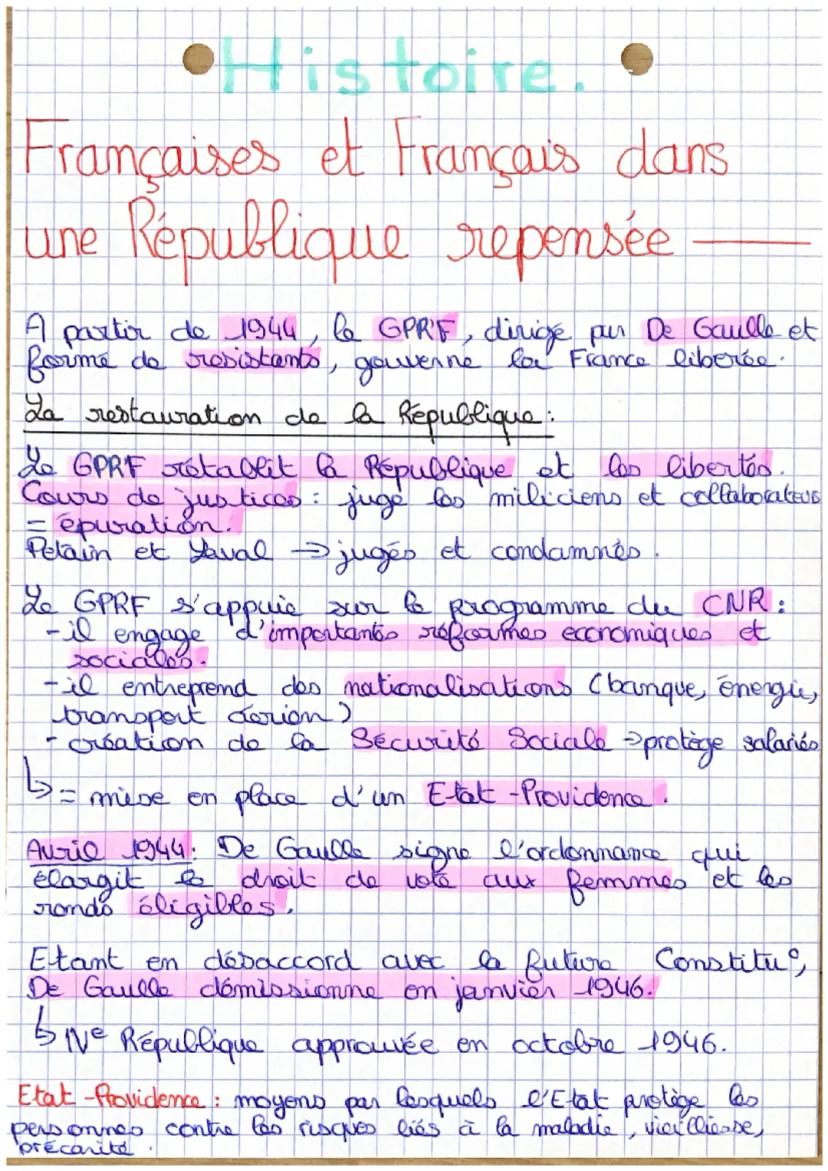 Histoire.
Françaises et Français dans
une République repensée
A partir de 1944, le GPRF, dirigé par De Gaulle et
formé de résistants, gouverne la France libérée.
La restauration de la République :
Le GPRF rétablit la République et les libertés.
Cours de justices : juge les miliciens et collaborateurs
= épuration.
Petain et Laval → jugés et condamnés.
Le GPRF s'appuie sur le programme du CNR :
- il engage d'importantes réformes economiques et
sociales.
- il entreprend des nationalisations (banque, énergie,
transport aérien)
- création de la Sécurité Sociale → protège salariés
↳ = mise en place d'un Etat-Providence.
Avril 1944 : De Gaulle signe l'ordonnance qui
élargit le droit de vote aux femmes et les
rends éligibles.
Etant en désaccord avec la future Constitu°,
De Gaulle démissionne en janvier 1946.
↳ IVe République approuvée en octobre 1946.
Etat-Providence : moyens par lesquels l'Etat protège les
personnes contre les risques liés à la maladie, vieilliesse,
précarité.